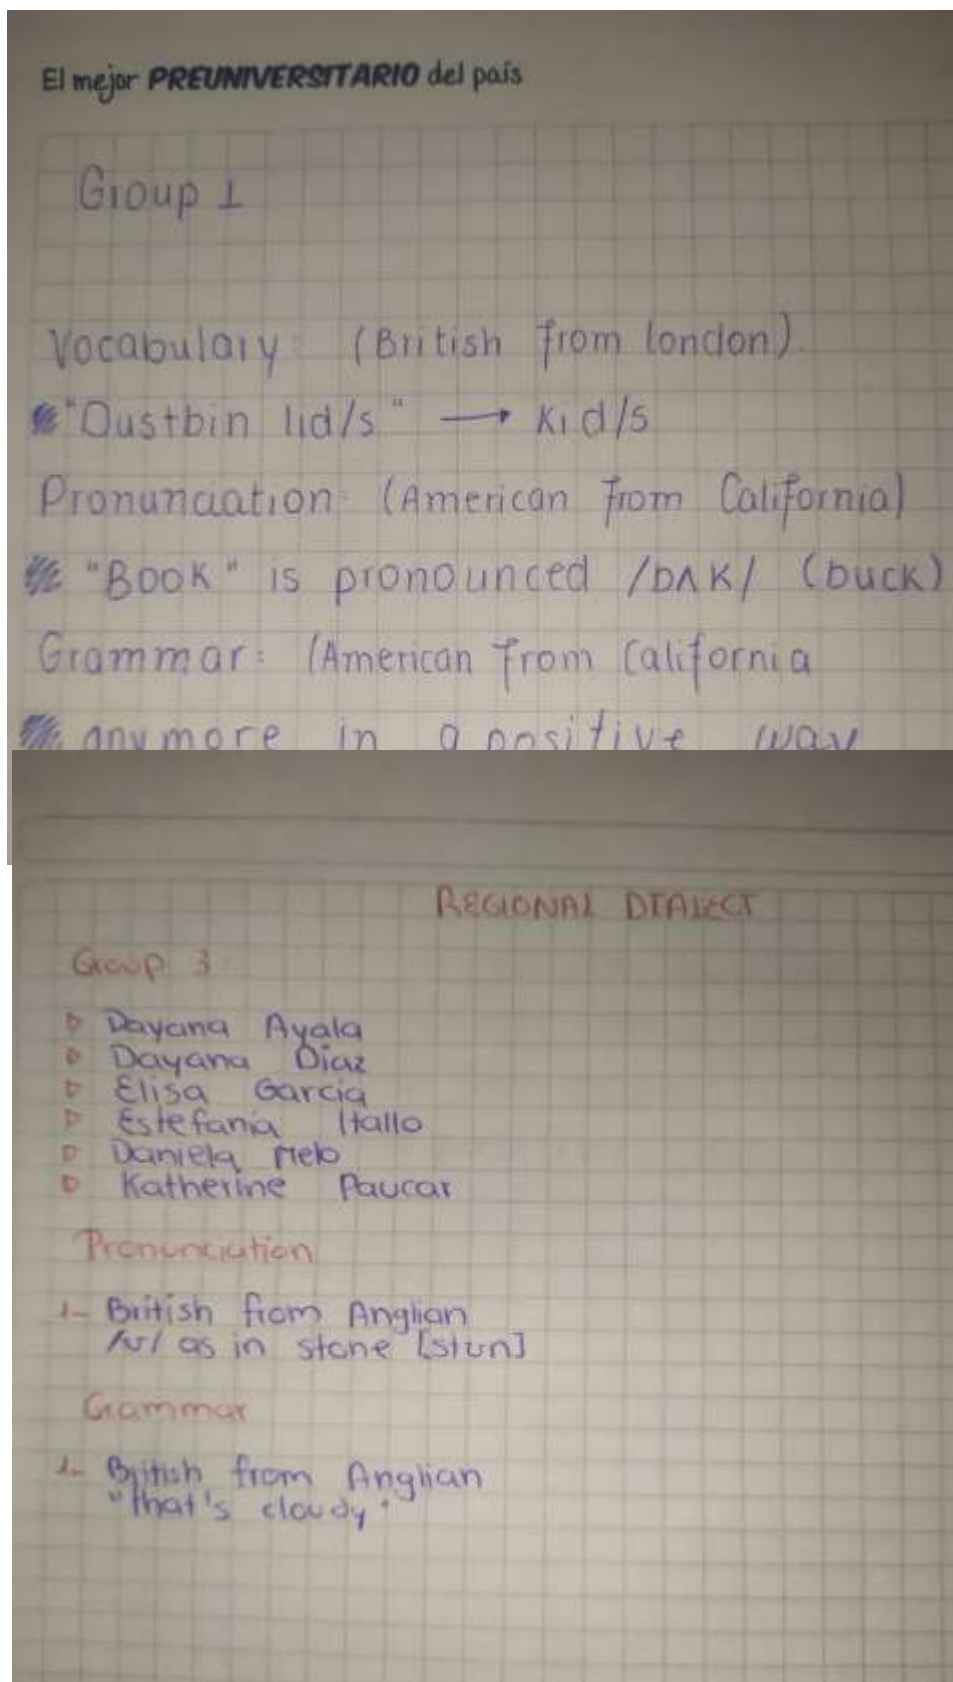 El mejor PREUNIVERSITARIO del país
Group 1
Vocabulary: (British from london)
"Dustbin lid/s" → Kid/s
Pronunciation: (American from California)
"Book" is pronounced /bʌK/ (buck)
Grammar: (American from California
anymore in a positive way
REGIONAL DIALECT
Group 3
Dayana Ayala
Dayana Díaz
Elisa García
Estefanía Itallo
Daniela Melo
Katherine Paucar
Pronunciation
1- British from Anglian
/ʊ/ as in stone [stʊn]
Grammar
1- British from Anglian
"that's cloudy"